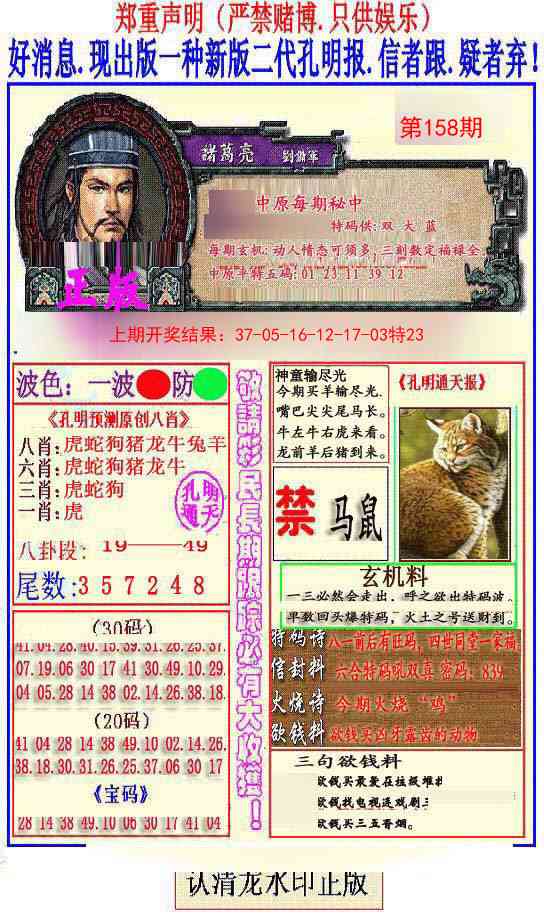 郑重声明（严禁赌博.只供娱乐）
好消息.现出版一种新版二代孔明报.信者跟.疑者弃！
第158期
諸葛亮
劉備軍
中原每期秘中
特码供:双 大 蓝
每期玄机:动人情态可须多,三刻数定福禄全.
中原平特五码:01 23 11 39 12
正版
上期开奖结果：37-05-16-12-17-03特23
波色：一波 防
《孔明预测原创八肖》
八肖:虎蛇狗猪龙牛兔羊
六肖:虎蛇狗猪龙牛
三肖:虎蛇狗
一肖:虎
孔明通天
八卦段: 19——49
尾数:3 5 7 2 4 8
(30码)
41.04.28.40.15.39.31.26.25.37
07.19.06.30 17 41 30.49.10.29
04 05.28 14 38 02.14.26.38.18
(20码)
41 04 28 14 38 49.10 02.14.26.
38.18.30.31.26.25.37.06 30 17
《宝码》
28 14 38 49.10 06 30 17 41 04
敬請彩民長期跟踪必有大收獲！
神童输尽光
今期买羊输尽光.
嘴巴尖尖尾马长。
牛左牛右虎来看。
龙前羊后猪到来。
《孔明通天报》
禁 马鼠
玄机料
一三必然会走出，呼之欲出特码波。
早数回头爆特码，火土之号送财到。
特码诗 八一前后有匹码,四世同堂一家福
信封料 六合特码吼双真 密码：839
火烧诗 今期火烧“鸡”
欲钱料 欲钱买凶牙露齿的动物
三句欲钱料
欲钱买最爱在垃圾堆扌
欲钱找电视连戏剧三
欲钱买三五香烟。
认清龙水印正版